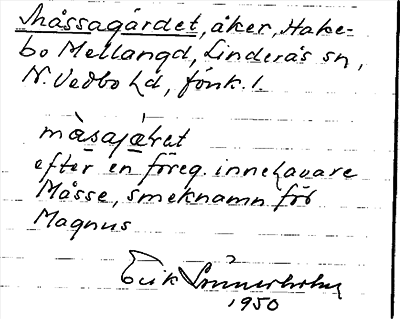 Måssagärdet, åker, Hake-
bo Mellangd, Linderås sn,
N. Vedbo hd, Jönk. l.
måsajæ̀ret
efter en föreg. innehavare
Måsse, smeknamn för
Magnus
Erik Linnerholm
1950